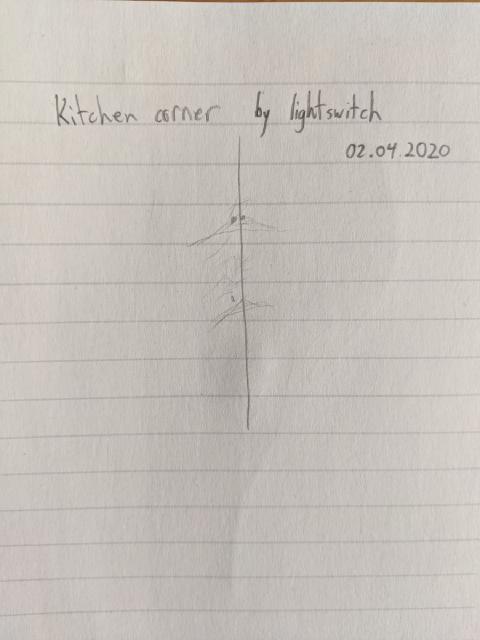 Kitchen corner by lightswitch
02.04.2020